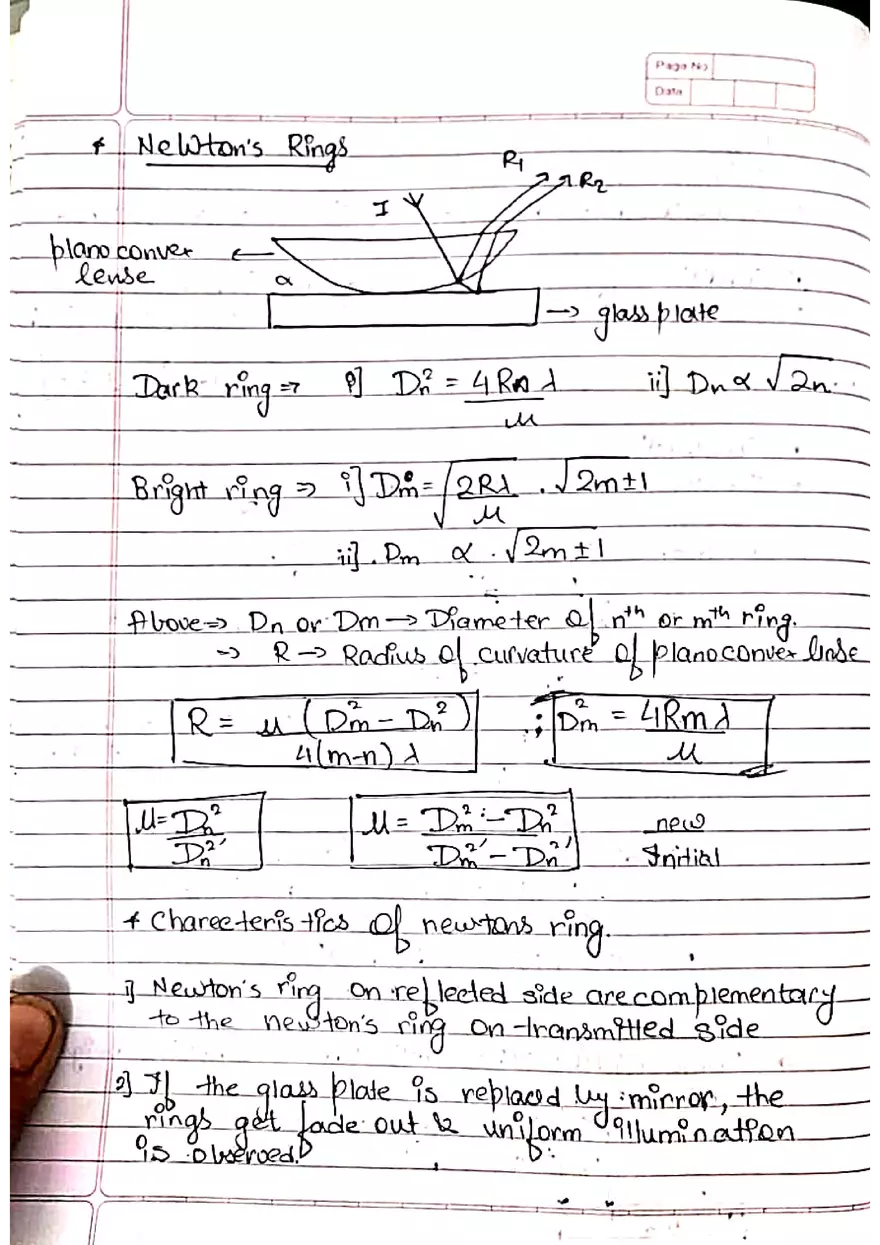 Page No
Date
* Newton's Rings
R₁
R₂
I
plano convex
lense
α
→ glass plate
Dark ring ⇒ i] Dn² = 4Rnλ/μ ii] Dn ∝ √2n
Bright ring ⇒ i] Dm = √2Rλ/μ . √2m±1
ii]. Dm ∝ . √2m±1
Above ⇒ Dn or Dm → Diameter of nᵗʰ or mᵗʰ ring.
→ R → Radius of curvature of planoconvex linse
R = μ (Dm² − Dn²)/4(m-n) λ ; Dm² = 4Rmλ/μ
μ = Dn²/Dn²' μ = Dm² − Dn²/Dm²' − Dn²' new
Initial
* Charecteristics of newtons ring.
1] Newton's ring on reflected side are complementary
to the newton's ring on transmitted side
2] If the glass plate is replaced by mirror, the
rings get fade out & uniform illumination
is observed.